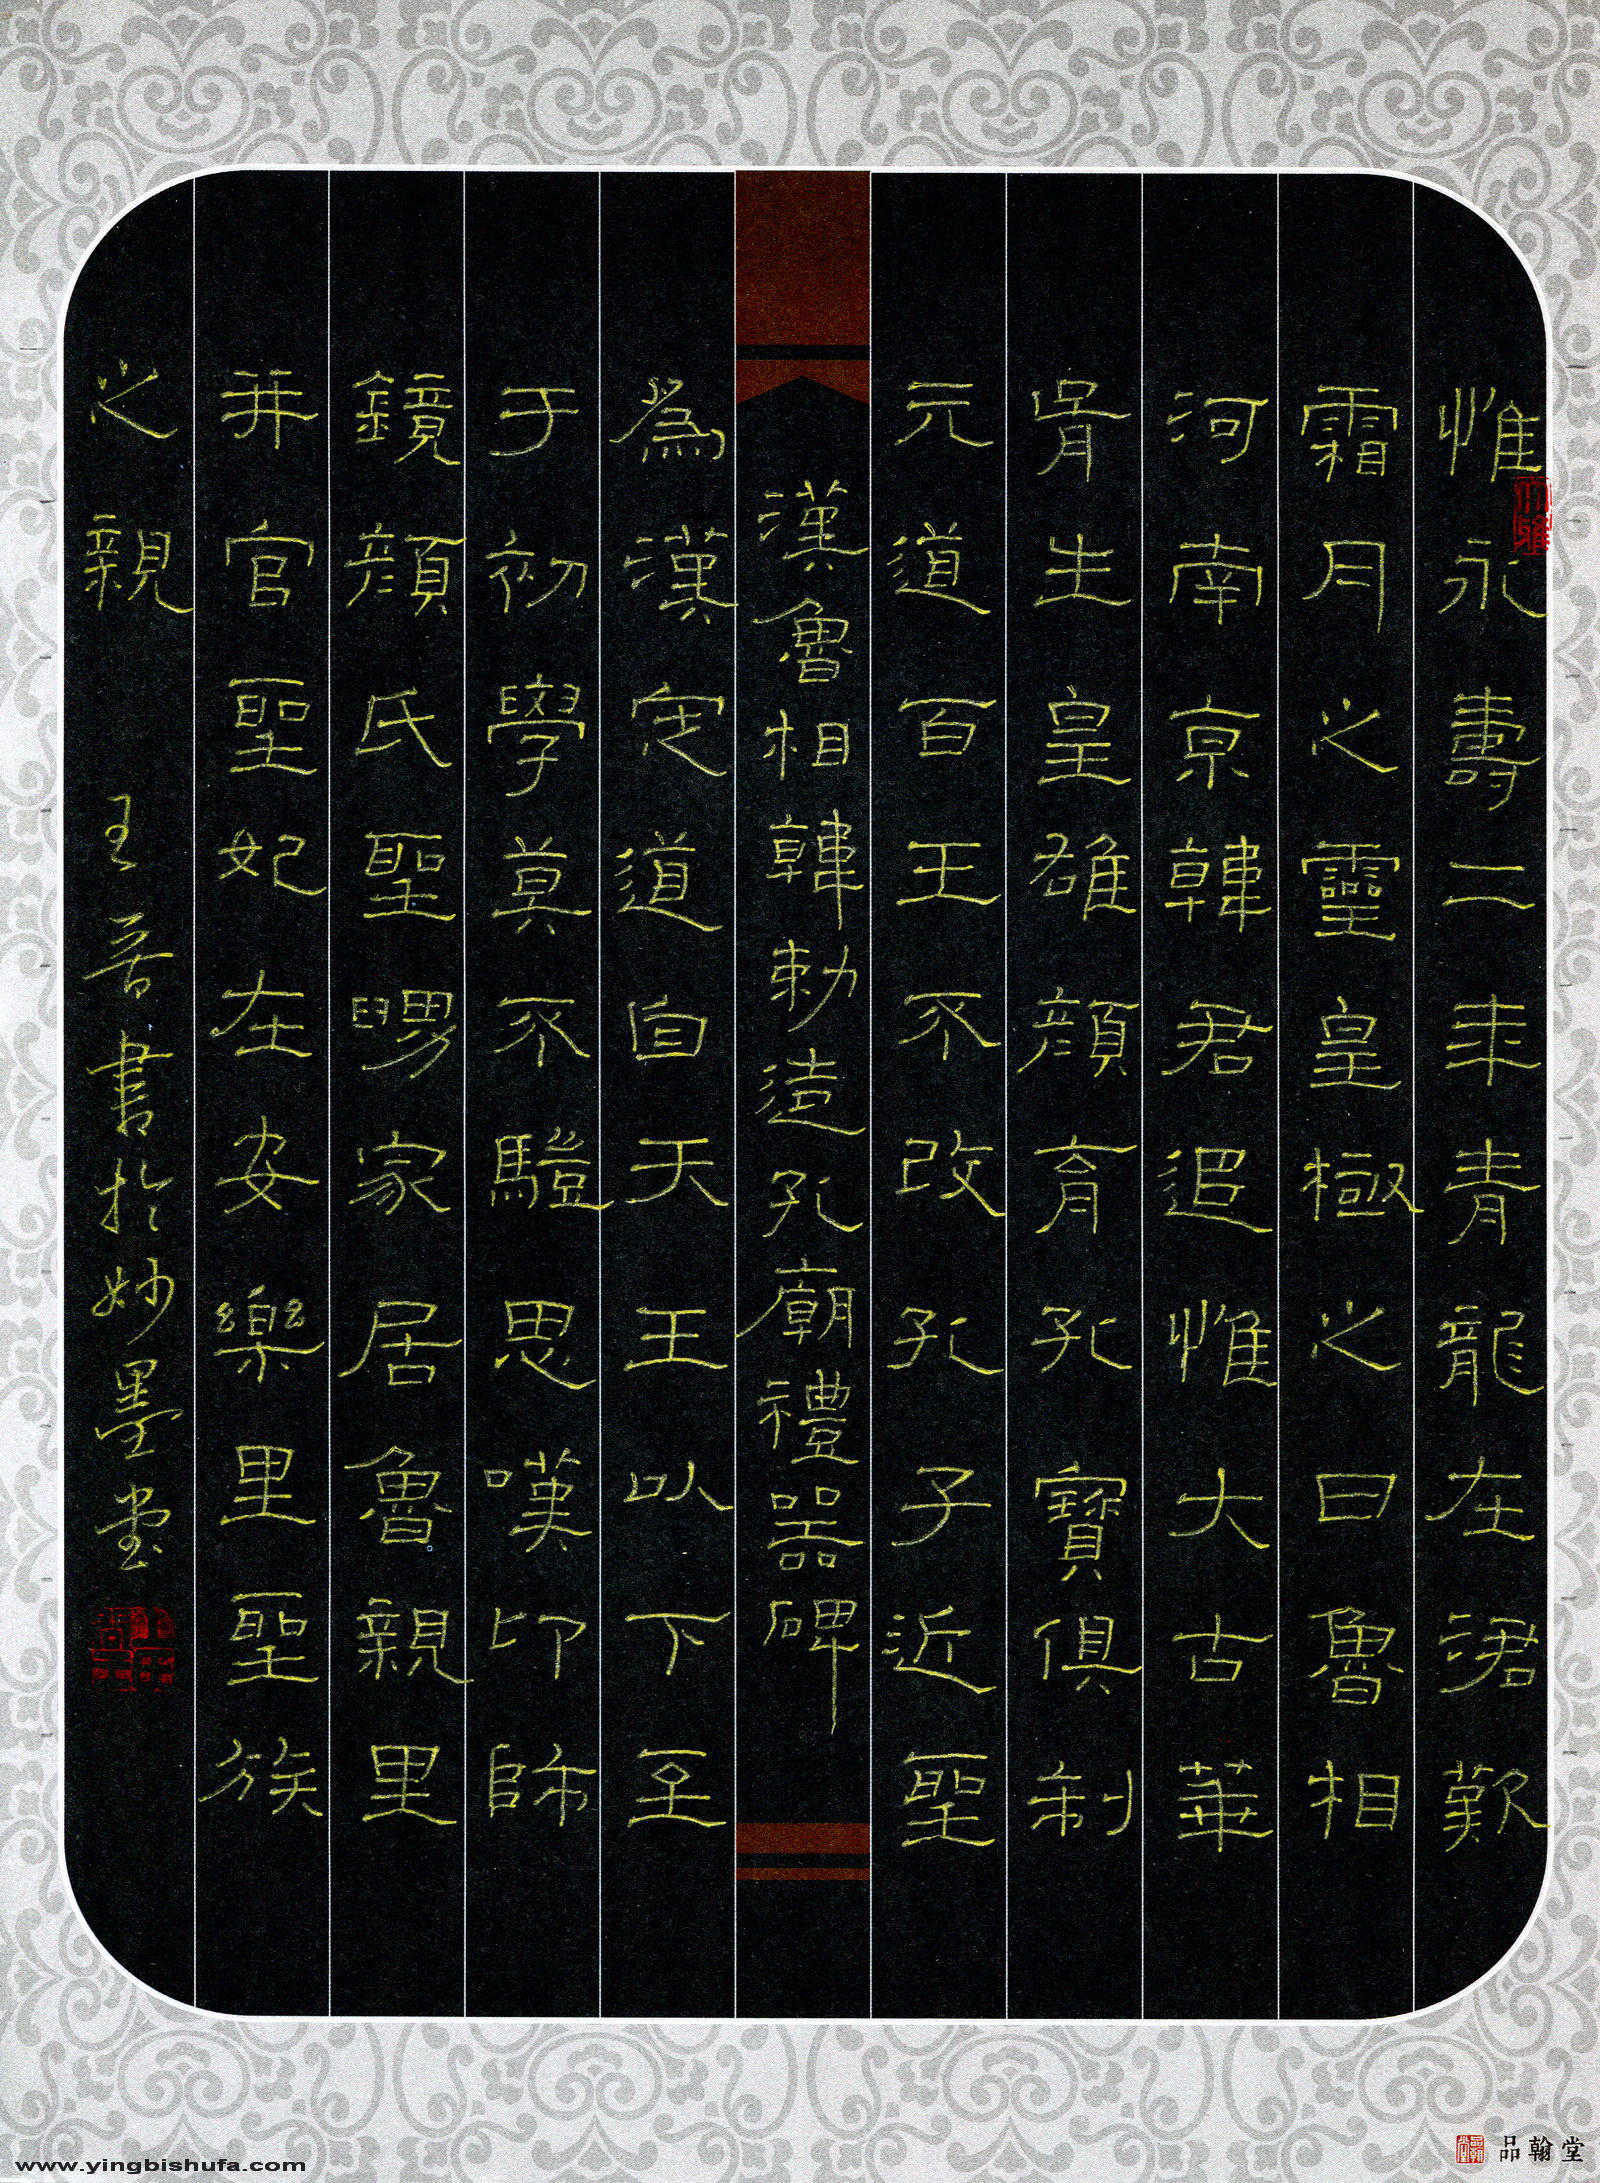 惟永壽二年青龍在涒歎
霜月之靈皇極之日魯相
河南京韓君追惟大古華
胥生皇雄顏育孔寶俱制
元道百王不改孔子近聖
漢魯相韓勅造孔廟禮器碑
為漢定道自天王以下至
于初學莫不驥思嘆卬師
鏡顏氏聖舅家居魯親里
并官聖妃在安樂里聖族
之親
書於妙墨堂
品翰堂
www.yingbishufa.com